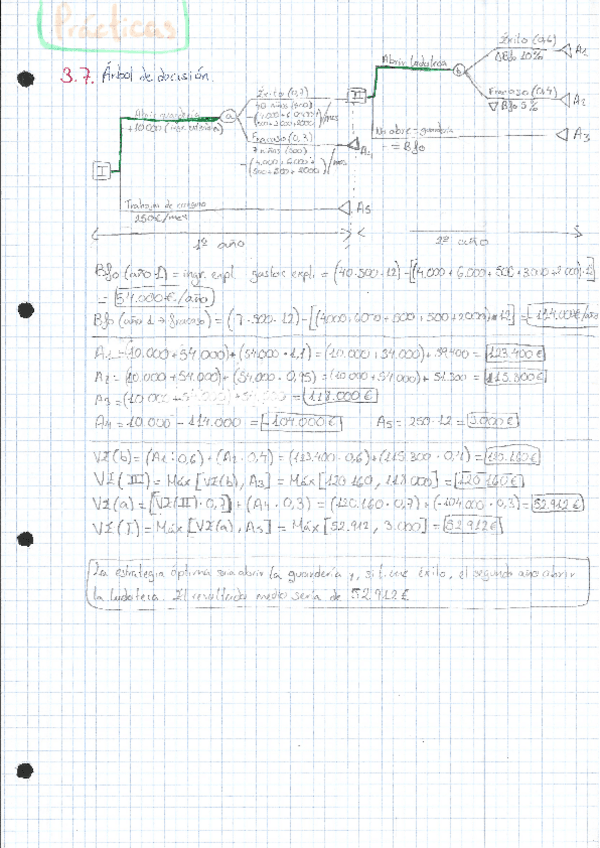 Prácticas
3.7. Árbol de decisión.
Abrir guardería
+10.000
a
Éxito (0,7)
40 niños (900)
Fracaso (0,3)
7 niños (900)
/mes
I
II
Abrir ludoteca
b
Éxito (0,6)
△Bfo 10%
A1
Fracaso (0,4)
▽Bfo 5%
A2
No abre guardería
= Bfo
A3
A4
Trabajar de
250€/mes
A5
1º año
2º año
Bfo (año 1) = ingr. expl. gastos expl. = (40·900·12) - [(4.000 + 6.000 + 500 + 3000 + 2000)·12]
= 54.000€/año
Bfo (año 1 → fracaso) = (7·900·12) - = -114.000€/año
A1 = (10.000 + 54.000) + (54.000 · 1,1) = (10.000 + 54.000) + 59.400 = 123.400€
A2 = (10.000 + 54.000) + (54.000 · 0,95) = (10.000 + 54.000) + 51.300 = 115.300€
A3 = (10.000 + 54.000) + 54.000 = 118.000€
A4 = 10.000 - 114.000 = -104.000€ A5 = 250·12 = 3.000€
VE(b) = (A1 · 0,6) + (A2 · 0,4) = (123.400·0,6) + (115.300·0,4) = 120.160€
VE(II) = Máx [VE(b), A3] = Máx [120.160, 118.000] = 120.160€
VE(a) = [VE(II)·0,7] + (A4 · 0,3) = (120.160·0,7) + (-104.000·0,3) = 52.912€
VE(I) = Máx [VE(a), A5] = Máx [52.912, 3.000] = 52.912€
La estrategia óptima sería abrir la guardería y, si tiene éxito, el segundo año abrir
la ludoteca. El resultado medio sería de 52.912€